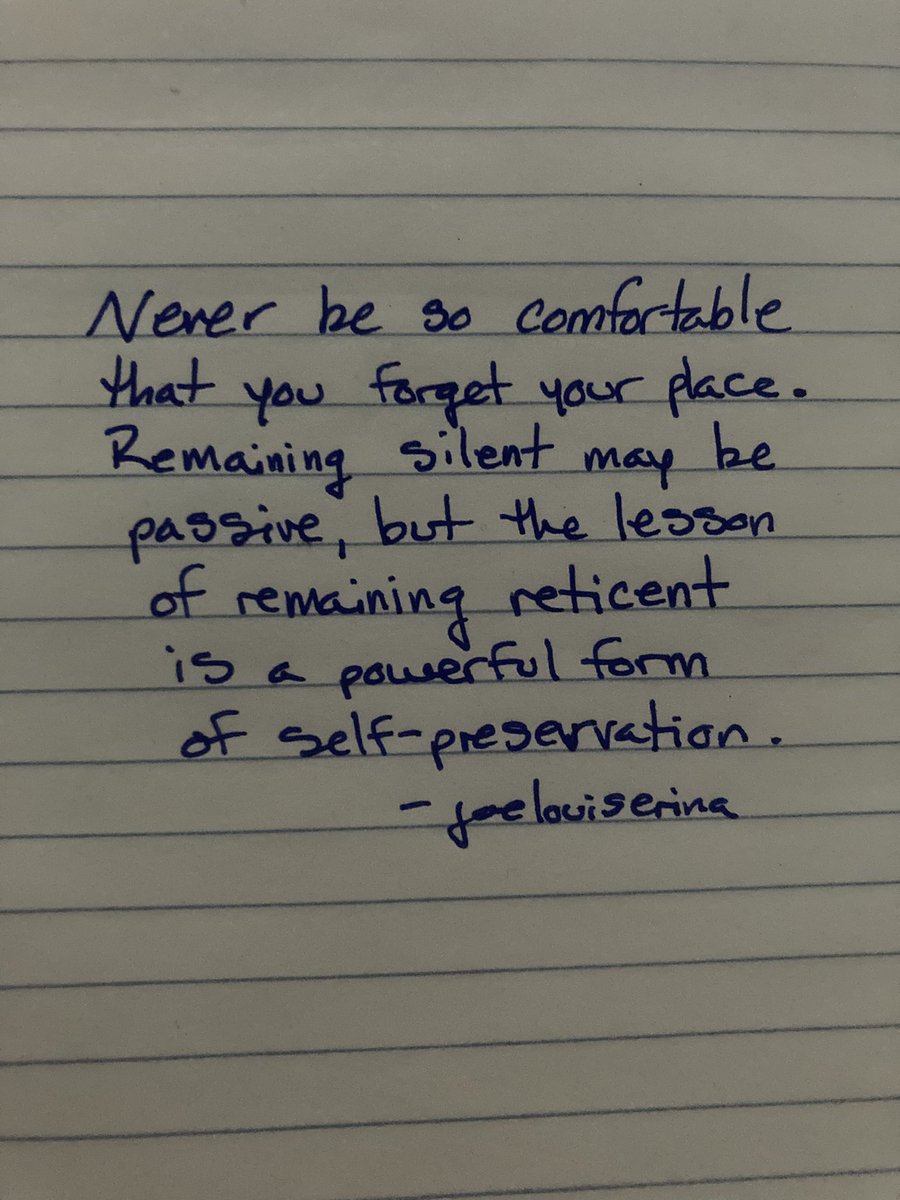 Never be so comfortable
that you forget your place.
Remaining silent may be
passive, but the lesson
of remaining reticent
is a powerful form
of self-preservation.
- joelouiserina